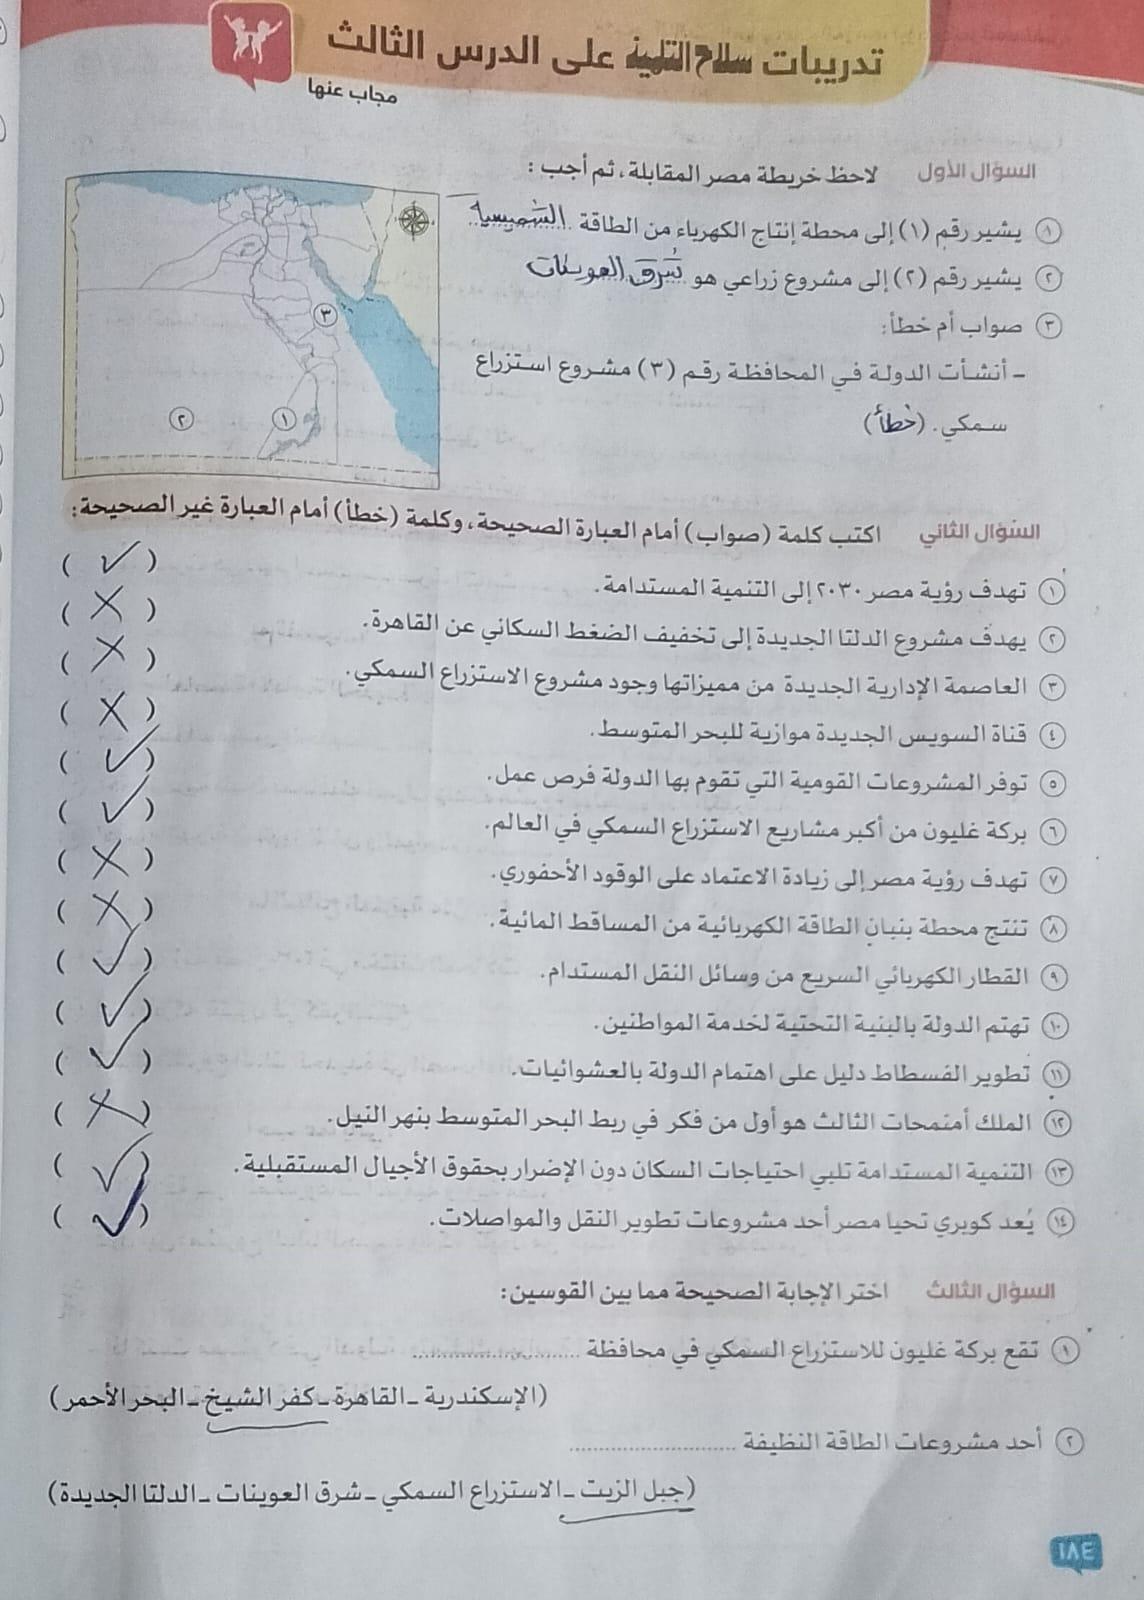 تدريبات سلاح التلميذ على الدرس الثالث
مجاب عنها
السؤال الأول لاحظ خريطة مصر المقابلة، ثم أجب :
١ يشير رقم (١) إلى محطة إنتاج الكهرباء من الطاقة الشمسية
٢ يشير رقم (٢) إلى مشروع زراعي هو شرق العوينات
٣ صواب أم خطأ:
- أنشأت الدولة في المحافظة رقم (٣) مشروع استزراع
سمكي. (خطأ)
٣
٢ ١
السؤال الثاني اكتب كلمة (صواب) أمام العبارة الصحيحة، وكلمة (خطأ) أمام العبارة غير الصحيحة:
١ تهدف رؤية مصر ٢٠٣٠ إلى التنمية المستدامة. ( ✓ )
٢ يهدف مشروع الدلتا الجديدة إلى تخفيف الضغط السكاني عن القاهرة. ( ✗ )
٣ العاصمة الإدارية الجديدة من مميزاتها وجود مشروع الاستزراع السمكي. ( ✗ )
٤ قناة السويس الجديدة موازية للبحر المتوسط. ( ✗ )
٥ توفر المشروعات القومية التي تقوم بها الدولة فرص عمل. ( ✓ )
٦ بركة غليون من أكبر مشاريع الاستزراع السمكي في العالم. ( ✓ )
٧ تهدف رؤية مصر إلى زيادة الاعتماد على الوقود الأحفوري. ( ✗ )
٨ تنتج محطة بنبان الطاقة الكهربائية من المساقط المائية. ( ✗ )
٩ القطار الكهربائي السريع من وسائل النقل المستدام. ( ✓ )
١٠ تهتم الدولة بالبنية التحتية لخدمة المواطنين. ( ✓ )
١١ تطوير الفسطاط دليل على اهتمام الدولة بالعشوائيات. ( ✓ )
١٢ الملك أمنمحات الثالث هو أول من فكر في ربط البحر المتوسط بنهر النيل. ( ✗ )
١٣ التنمية المستدامة تلبي احتياجات السكان دون الإضرار بحقوق الأجيال المستقبلية. ( ✓ )
١٤ يُعد كوبري تحيا مصر أحد مشروعات تطوير النقل والمواصلات. ( ✓ )
السؤال الثالث اختر الإجابة الصحيحة مما بين القوسين:
١ تقع بركة غليون للاستزراع السمكي في محافظة ....................
(الإسكندرية - القاهرة - كفر الشيخ - البحر الأحمر)
٢ أحد مشروعات الطاقة النظيفة ....................
(جبل الزيت - الاستزراع السمكي - شرق العوينات - الدلتا الجديدة)
١٨٤